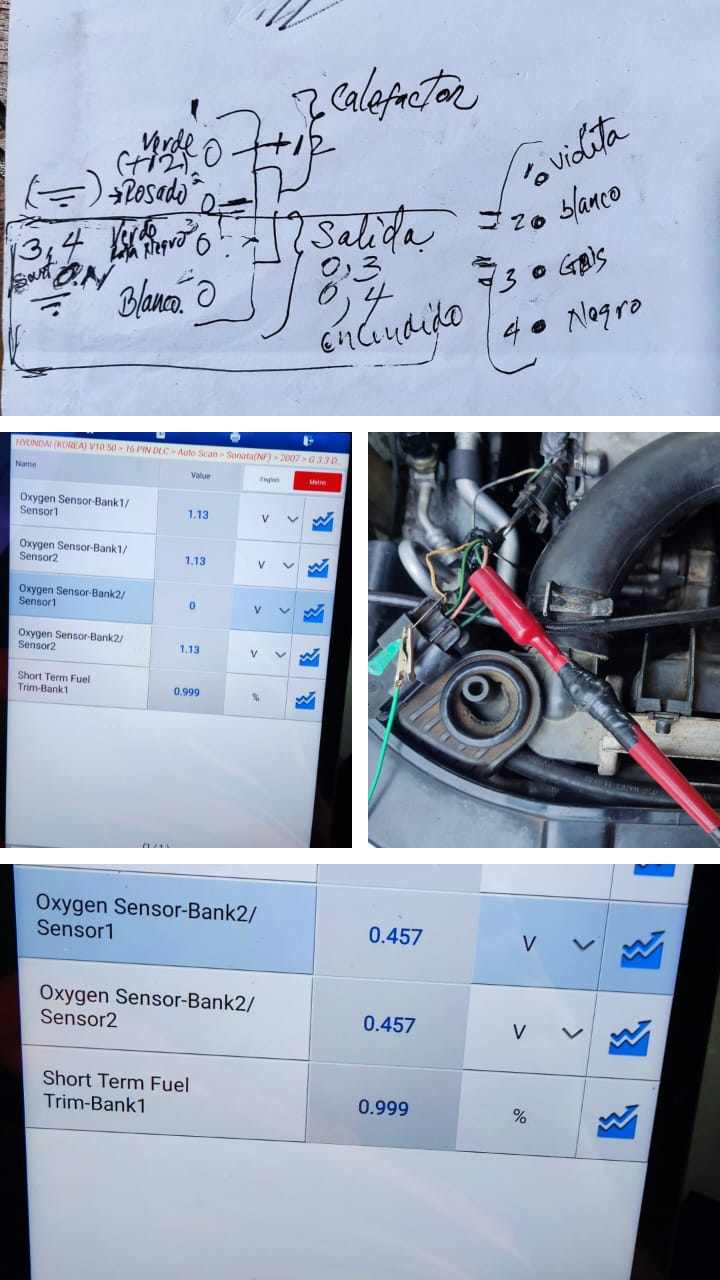 Calefactor
Verde
(+12) 0 +12
Rosado 0
3,4 Verde 0
Negro
Blanco. 0
Salida
0,3
0,4
encendido
1 violeta
2 blanco
3 Gris
4 Negro
HYUNDAI (KOREA) V10.50 > 16 PIN DLC > Auto Scan > Sonata(NF) > 2007 > G 3.3 D..
Name Value English Metric
Oxygen Sensor-Bank1/
Sensor1 1.13 V
Oxygen Sensor-Bank1/
Sensor2 1.13 V
Oxygen Sensor-Bank2/
Sensor1 0 V
Oxygen Sensor-Bank2/
Sensor2 1.13 V
Short Term Fuel
Trim-Bank1 0.999 %
Oxygen Sensor-Bank2/
Sensor1 0.457 V
Oxygen Sensor-Bank2/
Sensor2 0.457 V
Short Term Fuel
Trim-Bank1 0.999 %